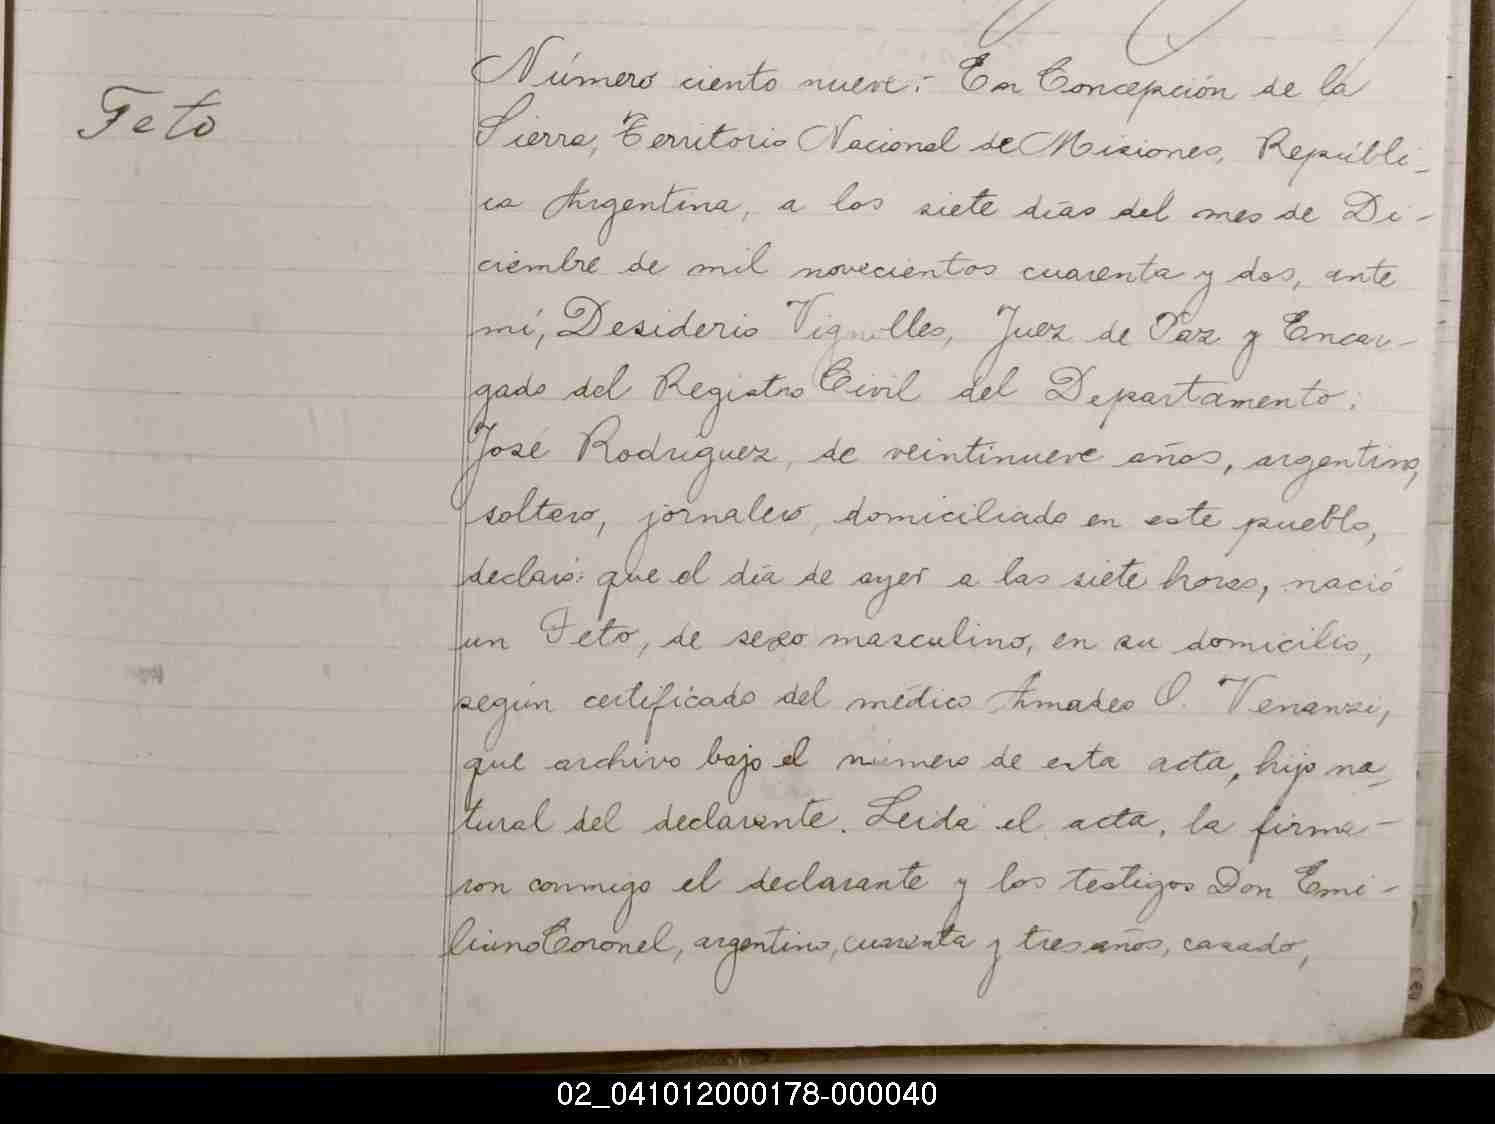 Feto
Número ciento nueve: En Concepción de la
Sierra, Territorio Nacional de Misiones, Repúbli-
ca Argentina, a los siete días del mes de Di-
ciembre de mil novecientos cuarenta y dos, ante
mí, Desiderio Vignolles, Juez de Paz y Encar-
gado del Registro Civil del Departamento:
José Rodríguez, de veintinueve años, argentino,
soltero, jornalero, domiciliado en este pueblo,
declaró: que el día de ayer a las siete horas, nació
un Feto, de sexo masculino, en su domicilio,
según certificado del médico Amadeo O. Venanzi,
que archivo bajo el número de esta acta, hijo na-
tural del declarante. Leída el acta, la firma-
ron conmigo el declarante y los testigos Don Emi-
liano Coronel, argentino, cuarenta y tres años, casado,
02_041012000178-000040